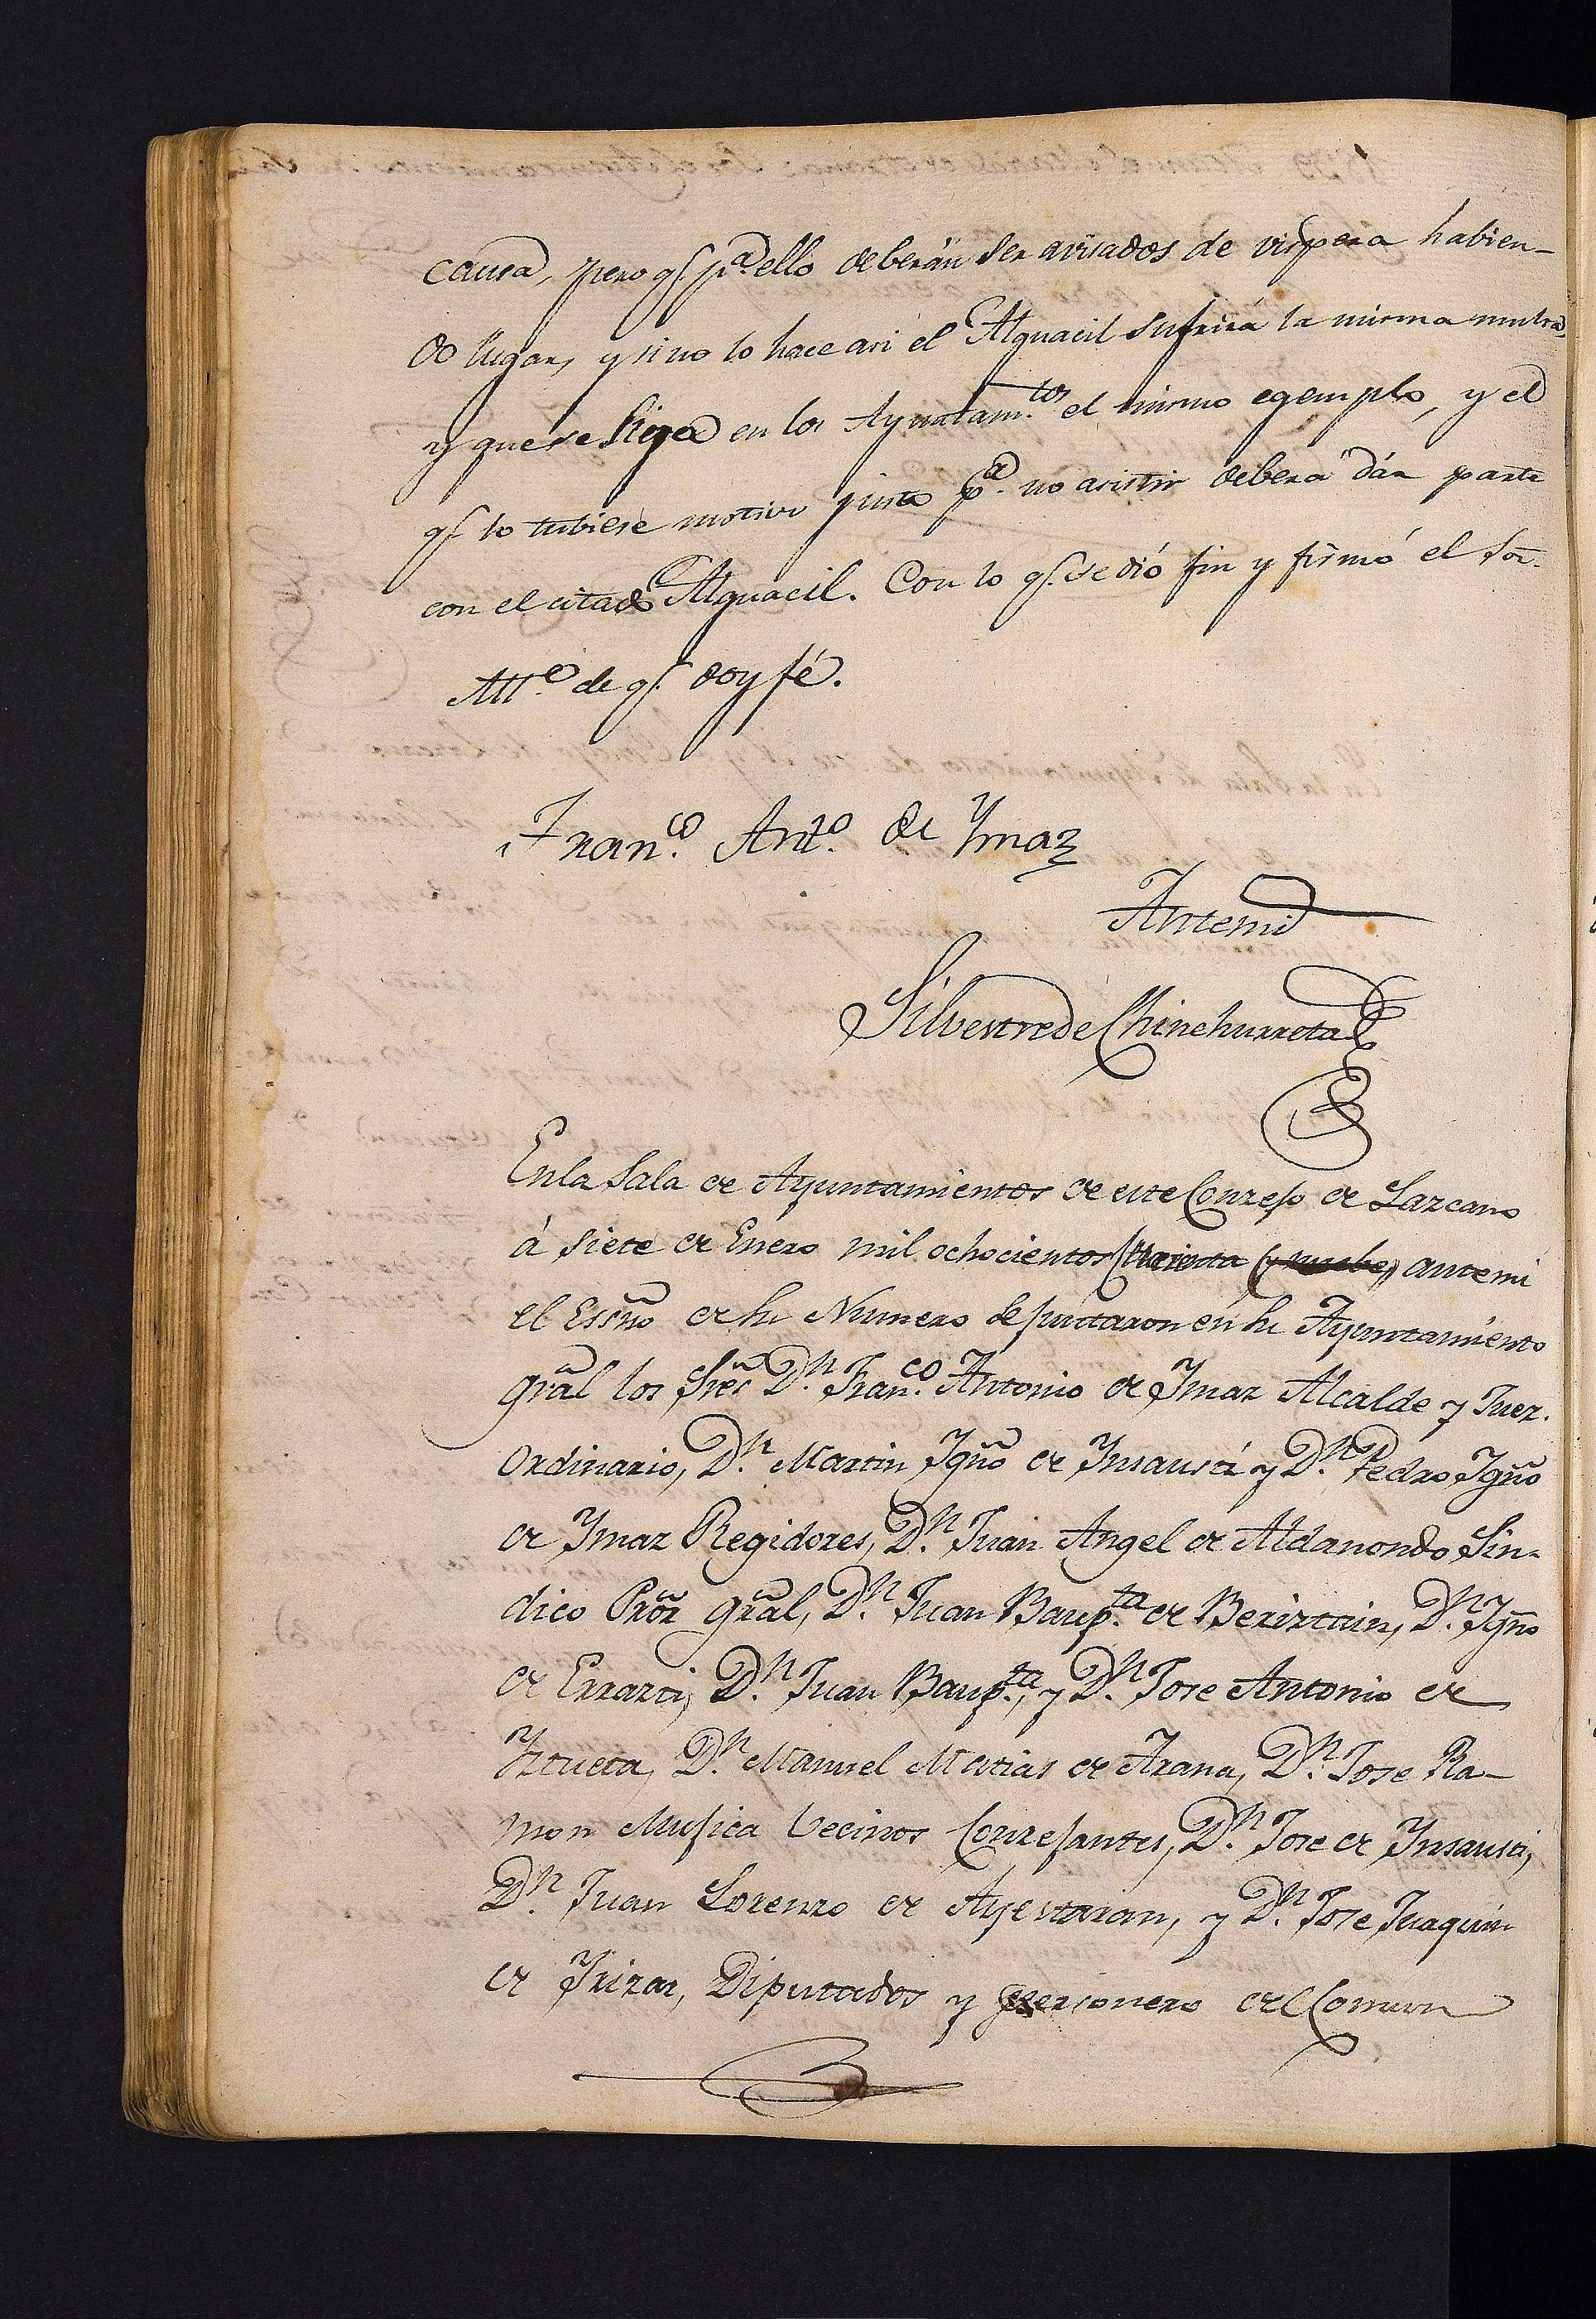 causa, pero q.e p.a ello deberán ser avisados de vispera habien-
do lugar, y si no lo hace asi el Alguacil sufrirá la misma multa,
y que se siga en los Ayuntam.tos el mismo egemplo, y el
q.e lo tubiese motivo justo p.a no asistir deberá dár parte
con el citado Alguacil. Con lo q.e se dió fin y firmó el Sor.
Alle de q.e doy fé.
Fran.co Ant.o de Ymaz
Antemi
Silvestre de Chinchurreta
En la Sala de Ayuntamientos de este Conzejo de Lazcano
á siete de Enero mil ochocientos treinta y nuebe, antemi
el Essño de su Numero se juntaron en su Ayuntamiento
grãl los Sres D.n Fran.co Antonio de Ymaz Alcalde y Juez
Ordinario, D.n Martin Ygño de Ynsausti y D.n Pedro Ygño
de Ymaz Regidores, D.n Juan Angel de Aldanondo Sin-
dico Prõr grãl, D.n Juan Baup.ta de Beriztain, D.n Ygño
de Errazti, D.n Juan Baup.ta, y D.n Jose Antonio de
Yztueta, D.n Manuel Matias de Arana, D.n Jose Ra-
mon Mujica Vecinos Conzejantes, D.n Jose de Ynsausti,
D.n Juan Lorenzo de Ayestaran, y D.n Jose Juaquin
de Yrizar, Diputados y personero del Comun